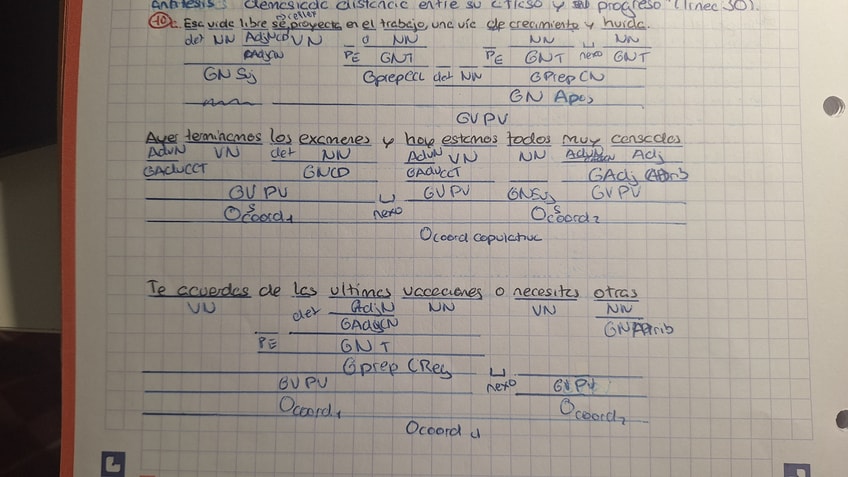 Antítesis: demasiada distancia entre su                y su progreso (línea 30).
10. Esa vida libre se proyecta en el trabajo, una vía de crecimiento y huida.
det NN AdjNCN VN _ a NN _ NN ⊔ NN
GAdjCN PE GNT PE GNT nexo GNT
GNSuj GprepCCL det NN GPrepCN
GN Apos
GVPV
Ayer terminamos los exámenes y hoy estamos todos muy cansados
AdvN VN det NN AdvN VN NN AdvN Adj
GAdvCCT GNCD GAdvCCT GAdj Atrib
GVPV ⊔ GVPV GNSuj GVPV
OScoord1 nexo OScoord2
Ocoord copulativa
Te acuerdas de las últimas vacaciones o necesitas otras
VN det AdjN NN VN NN
GAdjCN GNAtrib
PE GNT
Gprep CReg ⊔
GVPV nexo GVPV
Ocoord1 Ocoord2
Ocoord d